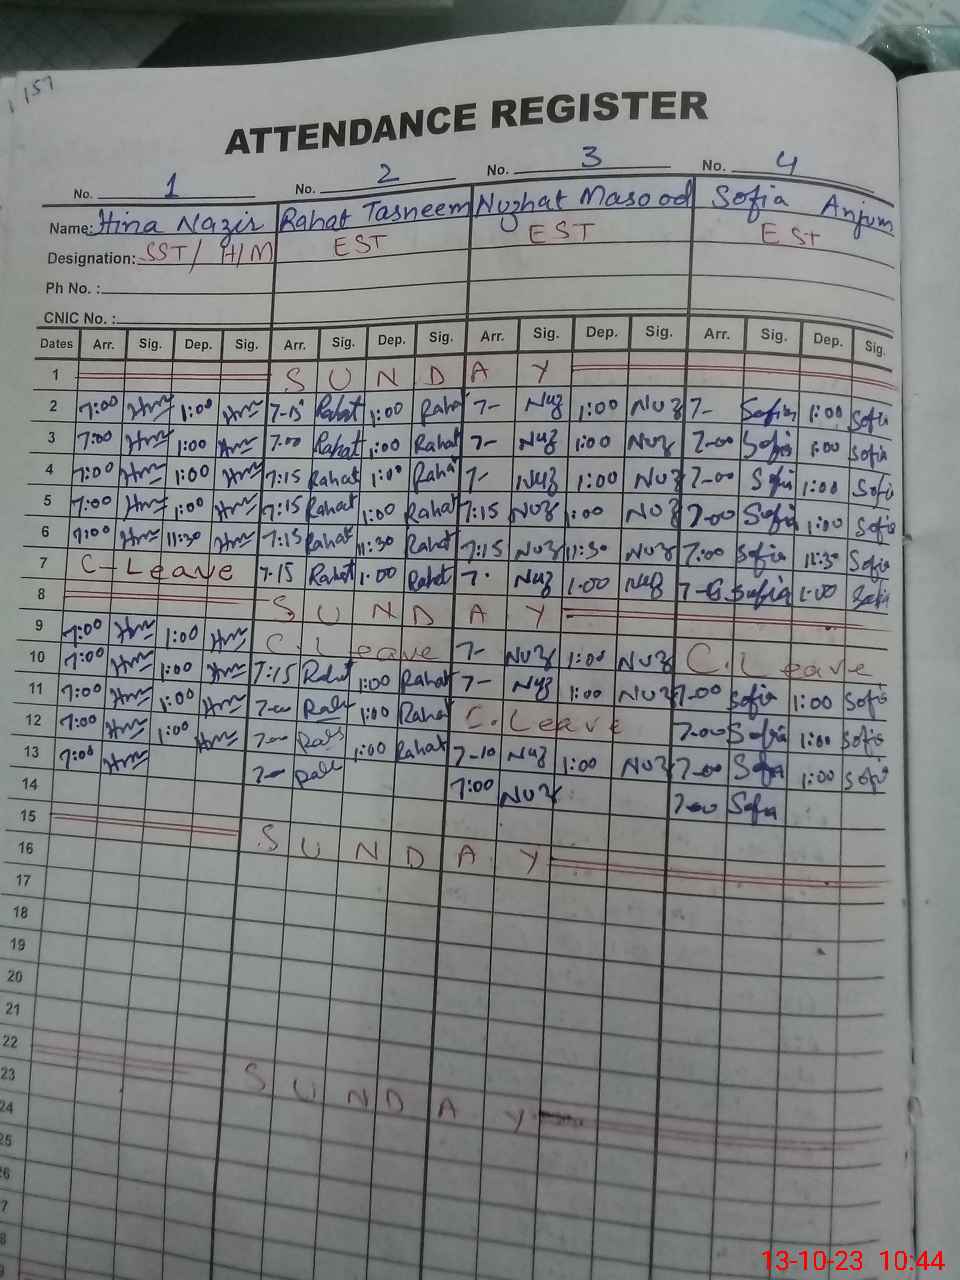 157
ATTENDANCE REGISTER
No. 1 No. 2 No. 3 No. 4
Name: Hina Nazir Rahat Tasneem Nuzhat Masood Sofia Anjum
Designation: SST/ H/M EST EST EST
Ph No. :
CNIC No. :
Dates Arr. Sig. Dep. Sig. Arr. Sig. Dep. Sig. Arr. Sig. Dep. Sig. Arr. Sig. Dep. Sig.
1 SUNDAY
2 7:00 1:00 7-15 Rahat 1:00 Rahat 7- Nuz 1:00 Nuz 7- Sofia 1:00 Sofia
3 7:00 1:00 7:00 Rahat 1:00 Rahat 7- Nuz 1:00 Nuz 7-00 Sofia 1:00 Sofia
4 7:00 1:00 7:15 Rahat 1:00 Rahat 7- Nuz 1:00 Nuz 7-00 Sofia 1:00 Sofia
5 7:00 1:00 7:15 Rahat 1:00 Rahat 7:15 Nuz 1:00 Nuz 7-00 Sofia 1:00 Sofia
6 7:00 11:30 7:15 Rahat 11:30 Rahat 7:15 Nuz 11:30 Nuz 7:00 Sofia 11:30 Sofia
7 C-Leave 7-15 Rahat 1:00 Rahat 7- Nuz 1:00 Nuz Sofia 1:00 Sofia
8 SUNDAY
9 7:00 1:00 C. Leave 7- Nuz 1:00 Nuz C. Leave
10 7:00 1:00 7:15 Rahat 1:00 Rahat 7- Nuz 1:00 Nuz 7-00 Sofia 1:00 Sofia
11 7:00 1:00 7-00 1:00 Rahat C. Leave 7-00 Sofia 1:00 Sofia
12 7:00 1:00 7-00 1:00 Rahat 7-10 Nuz 1:00 Nuz 7-00 Sofia 1:00 Sofia
13 7:00 7-00 7:00 Nuz 7-00 Sofia
14
15 SUNDAY
16
17
18
19
20
21
22 SUNDAY
23
24
25
26
7
8
9
13-10-23 10:44